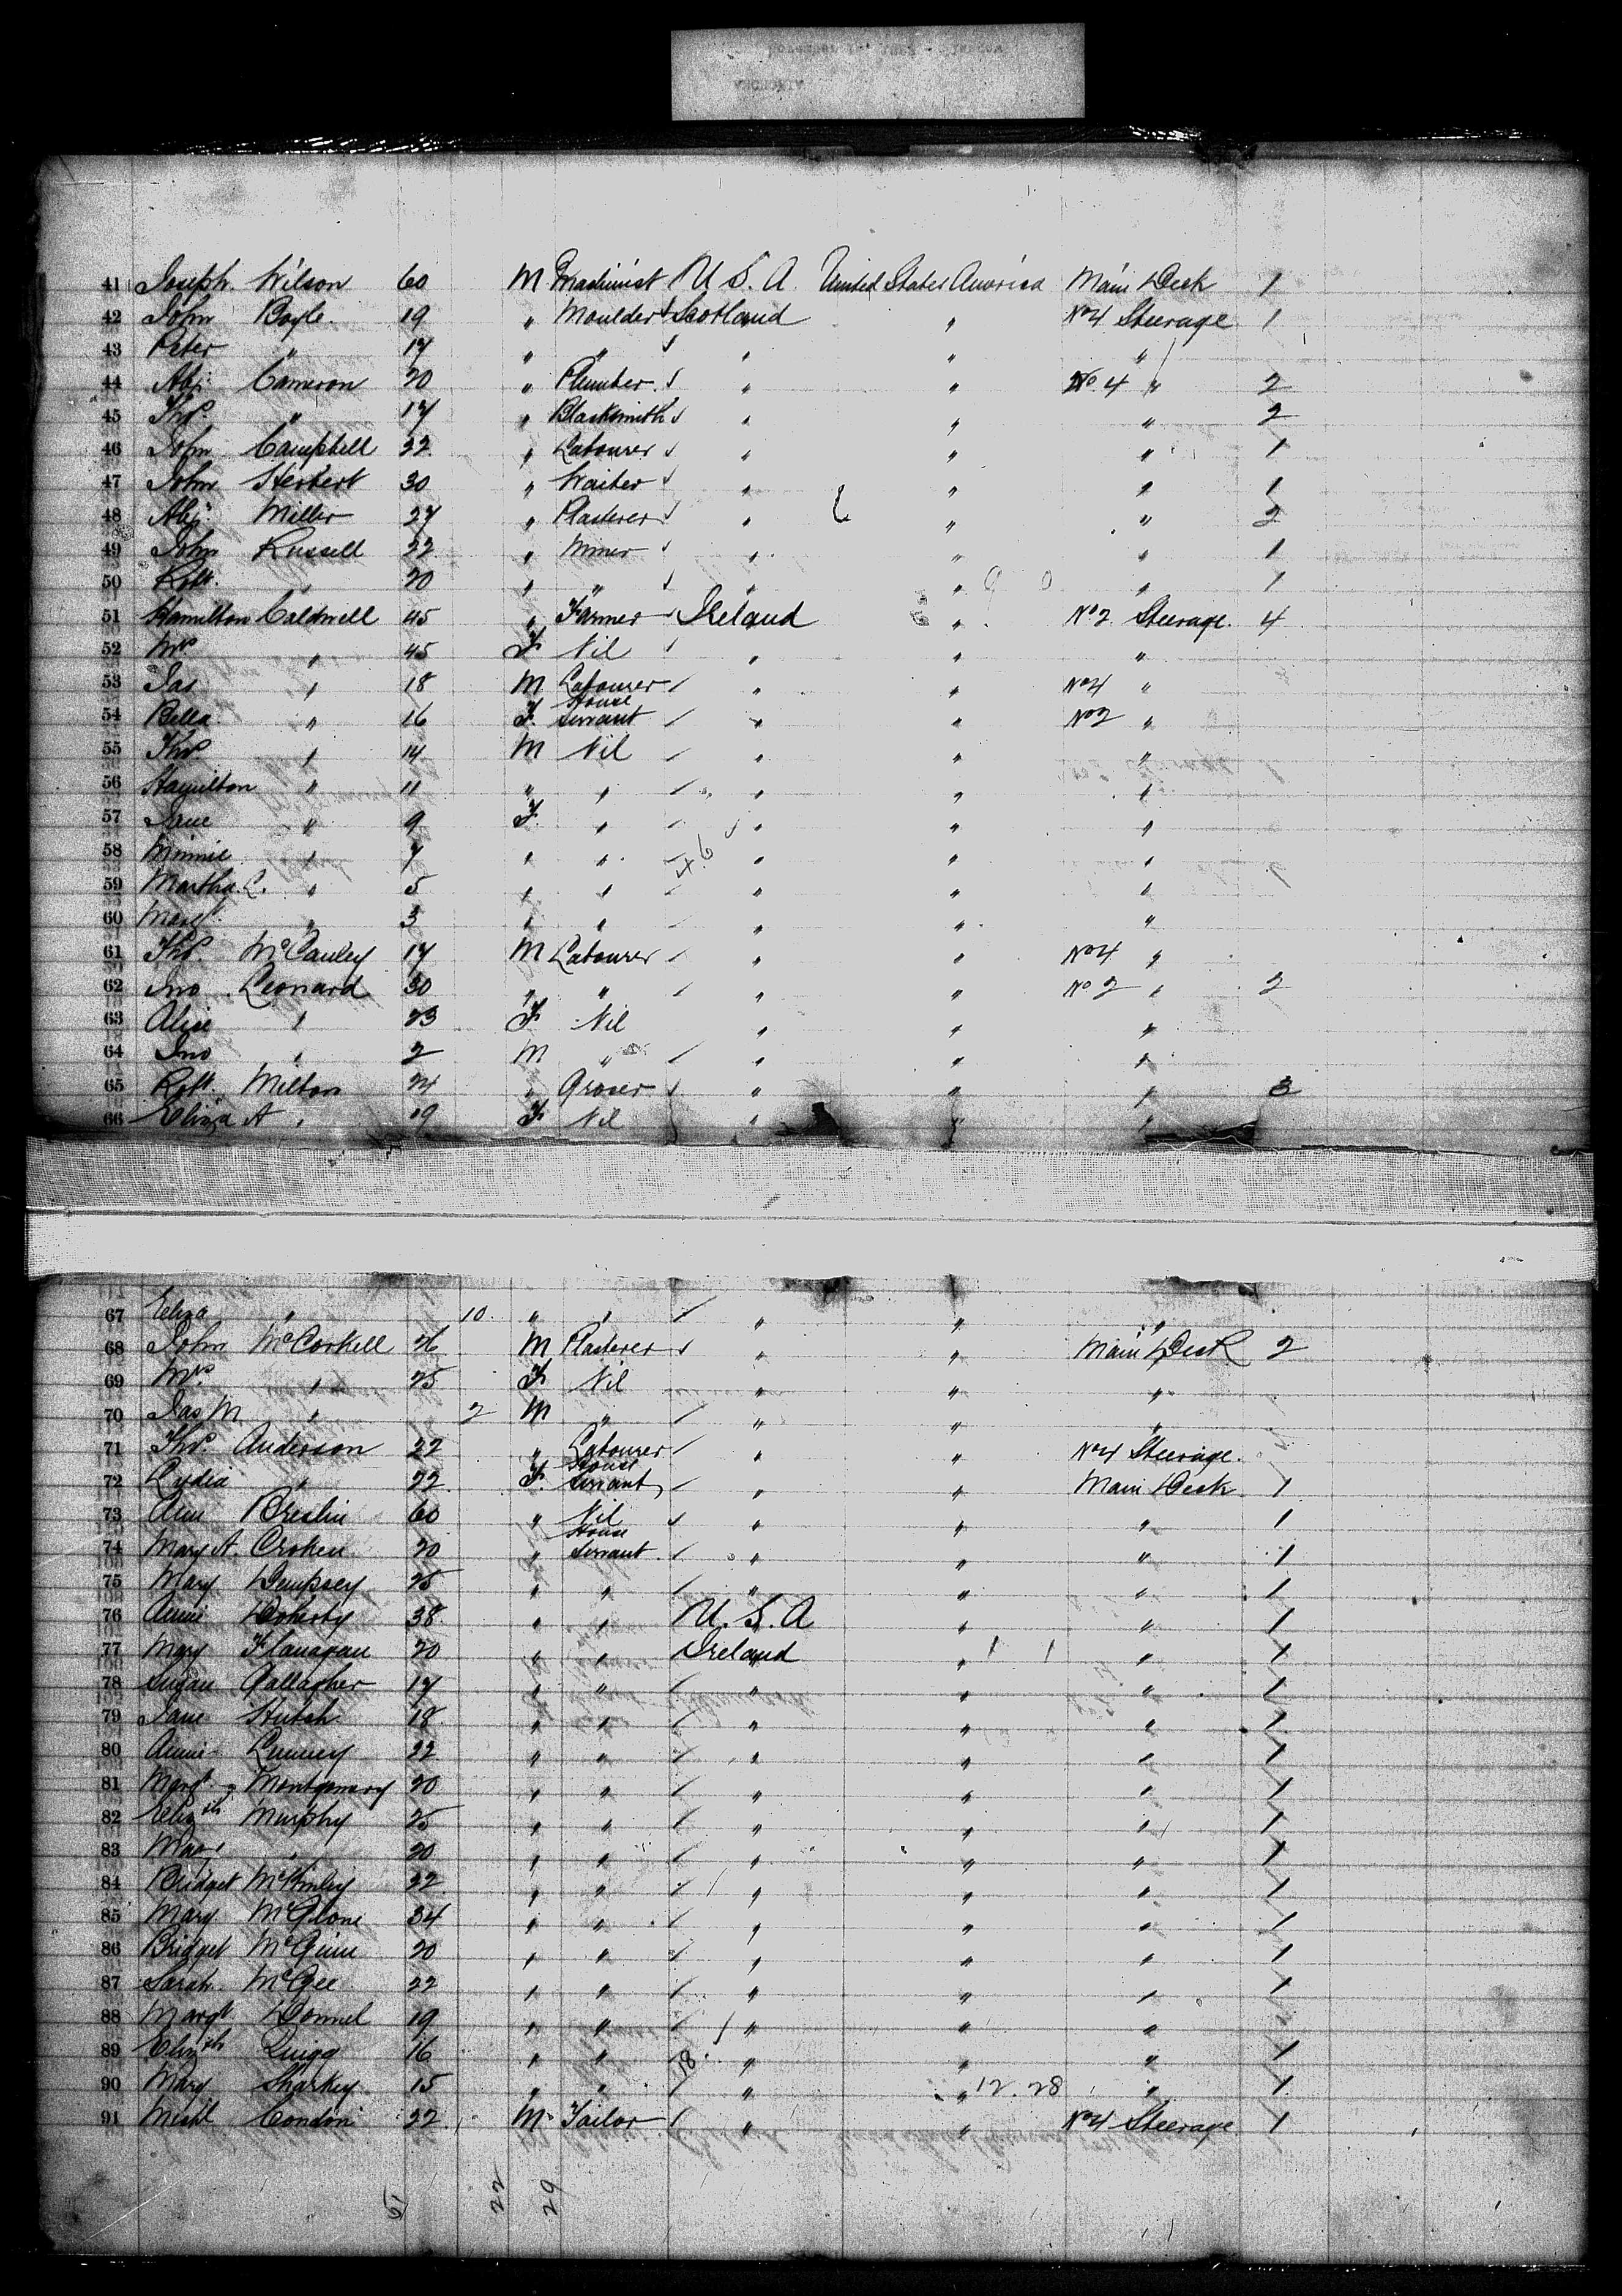 41 Joseph Wilson 60 M Machinist U.S.A. United States America Main Deck 1
42 John Boyle 19 " Moulder Scotland " No 4 Steerage 1
43 Peter " 17 " " " " "
44 Alex Cameron 20 " Plumber " " No 4 " 2
45 Thos. " 17 " Blacksmith " " " 2
46 John Campbell 22 " Labourer " " " 1
47 John Herbert 30 " Waiter " " " 1
48 Alex Miller 27 " Plasterer " " " 2
49 John Russell 22 " Miner " " " 1
50 Robt. " 20 " " " " " 1
51 Hamilton Caldwell 45 " Farmer Ireland " No 2 Steerage 4
52 Mrs " 45 F Nil " " "
53 Jas " 18 M Labourer " " No 4 "
54 Bella " 16 F House Servant " " No 2 "
55 Thos. " 14 M Nil " " "
56 Hamilton " 11 " " " " "
57 Jane " 9 F " " " "
58 Minnie " 7 " " " " "
59 Martha C. " 5 " " " " "
60 Margt " 3 " " " " "
61 Thos. McCauley 17 M Labourer " " No 4 "
62 Jno Leonard 30 " " " " No 2 " 2
63 Alice " 23 F Nil " " "
64 Jno " 2 M " " " "
65 Robt. Milton 24 " Grocer " " " 3
66 Eliza A " 19 F Nil " " "
67 Eliza " 10 " " " " "
68 John McCorkell 26 M Plasterer " " Main Deck 2
69 Mrs " 25 F Nil " " "
70 Jas M " 2 M " " " "
71 Thos. Anderson 22 " Labourer " " No 4 Steerage
72 Lydia " 22 F House Servant " " Main Deck 1
73 Ann Breslin 60 " Nil " " " 1
74 Mary A. Croken 20 " House Servant " " " 1
75 Mary Dempsey 25 " " " " " 1
76 Annie Doherty 38 " " U.S.A " " 1
77 Mary Flanagan 20 " " Ireland " " 1
78 Susan Gallagher 17 " " " " " 1
79 Jane Hutch 18 " " " " " 1
80 Annie Lunney 22 " " " " " 1
81 Margt. Montgomery 20 " " " " " 1
82 Elizth Murphy 25 " " " " " 1
83 Mary " 20 " " " " " 1
84 Bridget McGinley 22 " " " " " 1
85 Mary McGlone 34 " " " " " 1
86 Bridget McGinn 20 " " " " " 1
87 Sarah McGee 22 " " " " " 1
88 Margt Donnel 19 " " " " "
89 Elizth Quigg 16 " " " " " 1
90 Mary Sharkey 15 " " " " 12.28 " 1
91 Michl Condon 22 M Tailor " " No 4 Steerage 1
22 29